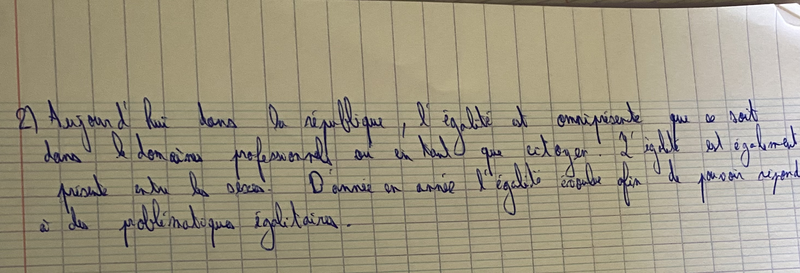 2) Aujourd'hui dans la république, l'égalité est omniprésente que ce soit
dans le domaines professionnels ou en tant que citoyen. L'égalité est également
présente entre les sexes. D'année en année l'égalité évolue afin de pouvoir repond
à des problématiques égalitaires.